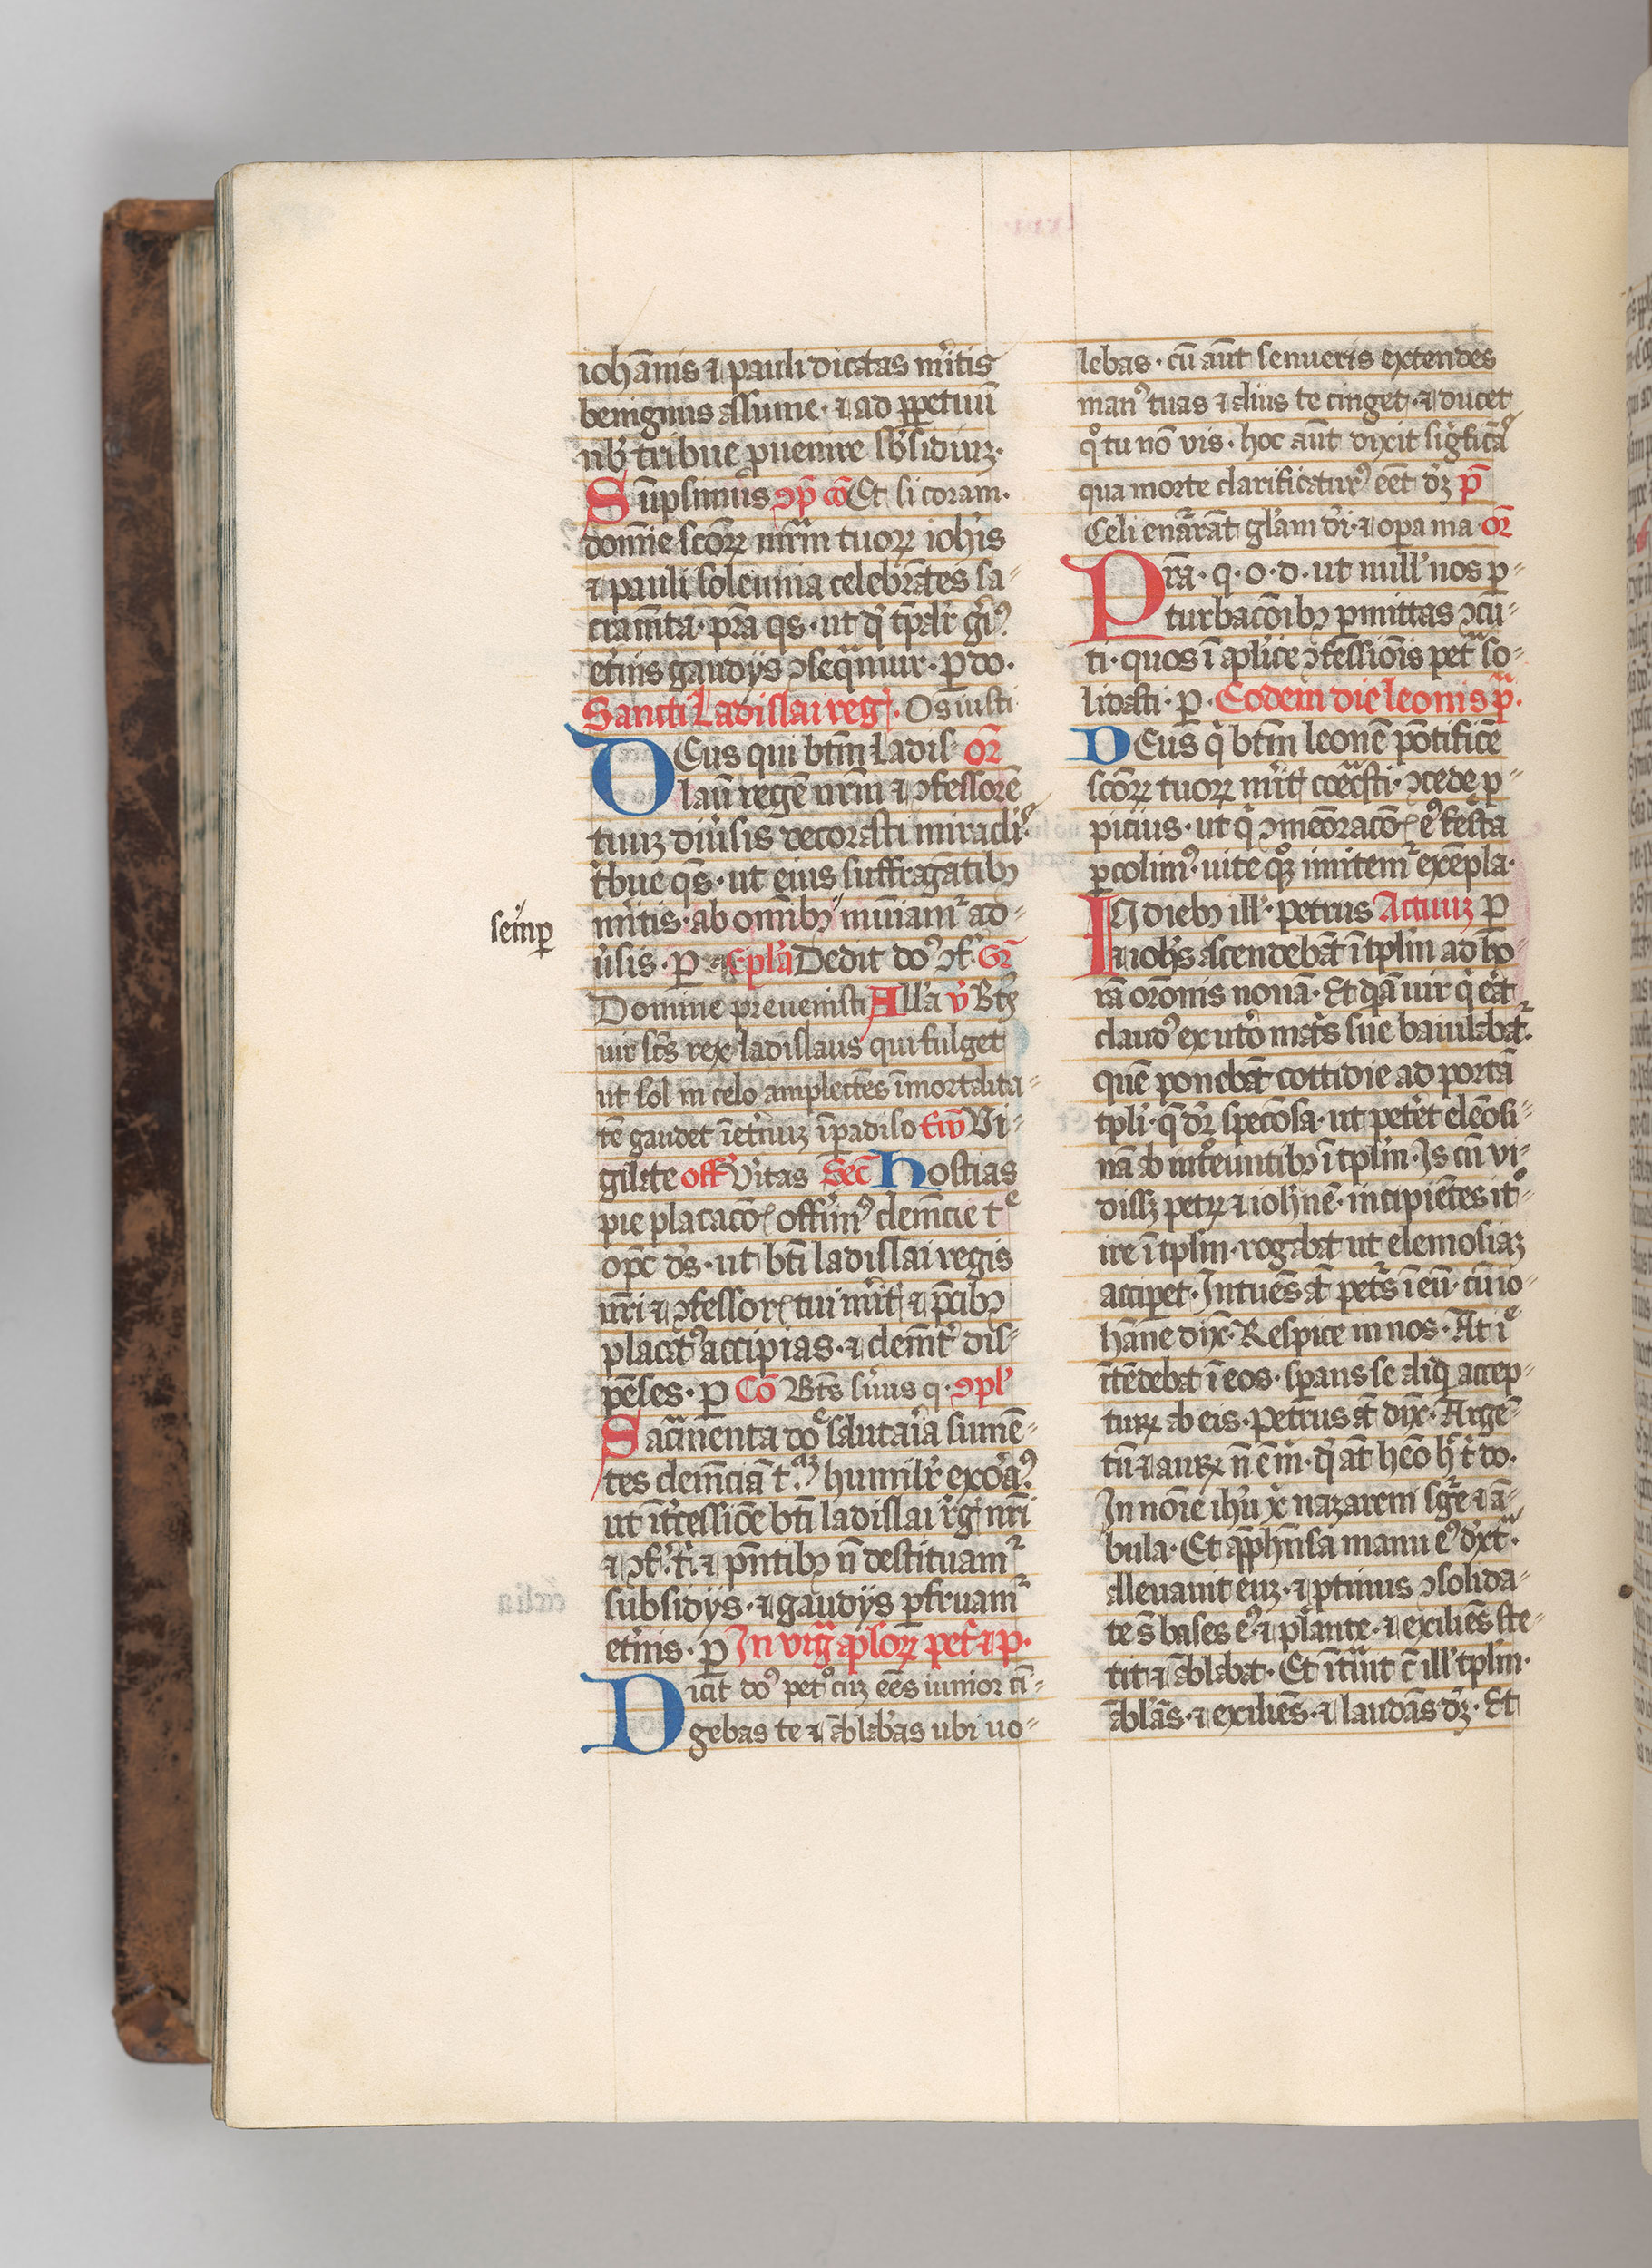 iohānis ⁊ pauli dicatas m̄itis
benignus assume · ⁊ ad ꝑpetuū
nb̄ tribue ꝓuenire sb̄sidiuꝫ ·
Sūpsimus ꝯp̄ cō Et si coram ·
domīe scōꝝ mr̄m tuoꝝ ioh̓is
⁊ pauli solennia celebrātes sa-
cramēta · pr̄a qs · ut
et̓nis gaudijs ꝯseqmur · ꝑ do ·
Sancti Ladislai reg · Os iusti
DEus qui btm̄ Ladis- or̄
laū regē nr̄m ⁊ ꝯfessorē
tuuꝫ diu̓sis decorasti miracl̓i
t̓bue qs̄ · ut eius suffragātibꝫ
semꝑ
m̓itis · ab omībꝫ muniamᷣ ad-
u̓sis · ꝑ Epl̓a Dedit do ꝯf Gr̄
Domine preuenisti All̓a v̓ Bt̄
uir sc̄s rex ladislaus qui fulget
ut sol in celo amplectēs īmortalita-
tē gaudet īet̓nuꝫ īpadiso Ew̄ Vi-
gilate off̓ V̓itas Sec̄ Hostias
pie placacōꝭ offim᷒ clemēcie tᵉ
opc̄ ds̄ · ut bt̄i ladislai regis
nr̄i ⁊ ꝯfessorꝭ tui m̓it ⁊ p̄cibꝫ
placat᷒ accipias · ⁊ clemt̓ dis-
pēses · ꝑ Cō Bt̄s s̓uus q · ꝯpl̓
Sacᷓmenta doᵉ salutaria sumē-
tes clemēciā humilr̓ exōa᷒
ut īt̓cessiōe bt̄i ladislai rg̓ nr̄i
⁊ ꝯf · t̓i ⁊ p̄ntibꝫ n̄ destituamᷣ
subsidijs · ⁊ gaudijs ꝑfruamᷣ
et̓nis · ꝑ In vigᷓ apl̓oꝝ pet̓ ⁊ p ·
Dicit do᷒ petº cuꝫ eēs iunior cī-
gebas te ⁊ ābl̓abas ubi uo-
lebas · cū aūt senueris extendes
man᷒ tuas ⁊ alius te cinget · ⁊ ducet
qº tu nō vis · hoc aūt dixit sigficā
qua morte clarificatur᷒ eēt dꝫ p̄
Celi enarāt gl̓am d̓i · ⁊ opa ma or̄
Prā · q · o · d · ut null̓ nos ꝑ-
turbacōibꝫ ꝑmittas ꝯcu-
ti · quos ī aplice ꝯfessiōis petᷓ so-
lidasti · ꝑ · Eodem die leonis pᷓ ·
DEus q̓ btm̄ leonē pōtificē
scōꝝ tuoꝝ m̓it coeqᷓsti · ꝯcede ꝓ-
picius · ut q̓ ꝯmeōracōꝭ e᷒ festa
ꝑcolim᷒ · uite qºqꝫ imitemᷣ exēpla ·
IN diebꝫ ill̓ · petrus Actuuꝫ ꝑ
⁊ ioh̓s ascendebāt ī tpl̓m ad ho-
rā oronis nonā · Et qᷓdā uir q̓ eāt
claud᷒ ex ut̓o mat̓s sue baiulabatᷣ ·
quē ponebāt cottidie ad portā
tpl̓i · q̄ dr̓ speciōsa · ut pet̓et elēosi-
nā ab intºeuntibꝫ ī tpl̓m · Is cū vi-
dissꝫ petꝝ ⁊ ioh̓nē · incipiētes itº-
ire ī tpl̓m · rogabat ut elemosiaꝫ
accipet · Intuēs āt petr̓s ī eū · cū io-
hāne dix̓ · Respice in nos · At iᵉ
ītēdebat ī eos · sꝑans se aliq̓ accep-
tuꝝ ab eis · Petrus āt dix̓ · Argē-
tū ⁊ auꝝ n̄ ē m̓ · q̓ āt heō hᵉ t̓ do ·
In noīe ih̓u x̓ nazareni sg̓e ⁊ ā-
bula · Et app̄h̄nsa manu e᷒ dxtᷓ ·
alleuauit euꝫ · ⁊ ptinus ꝯsolida-
te s̄ bases e᷒ ⁊ plante · ⁊ exiliēs ste-
tit ⁊ ābl̓abat · Et ītᷓuit c̄ ill̓ tpl̓m ·
ābl̓ās · ⁊ exiliēs · ⁊ laudās dꝫ · Et